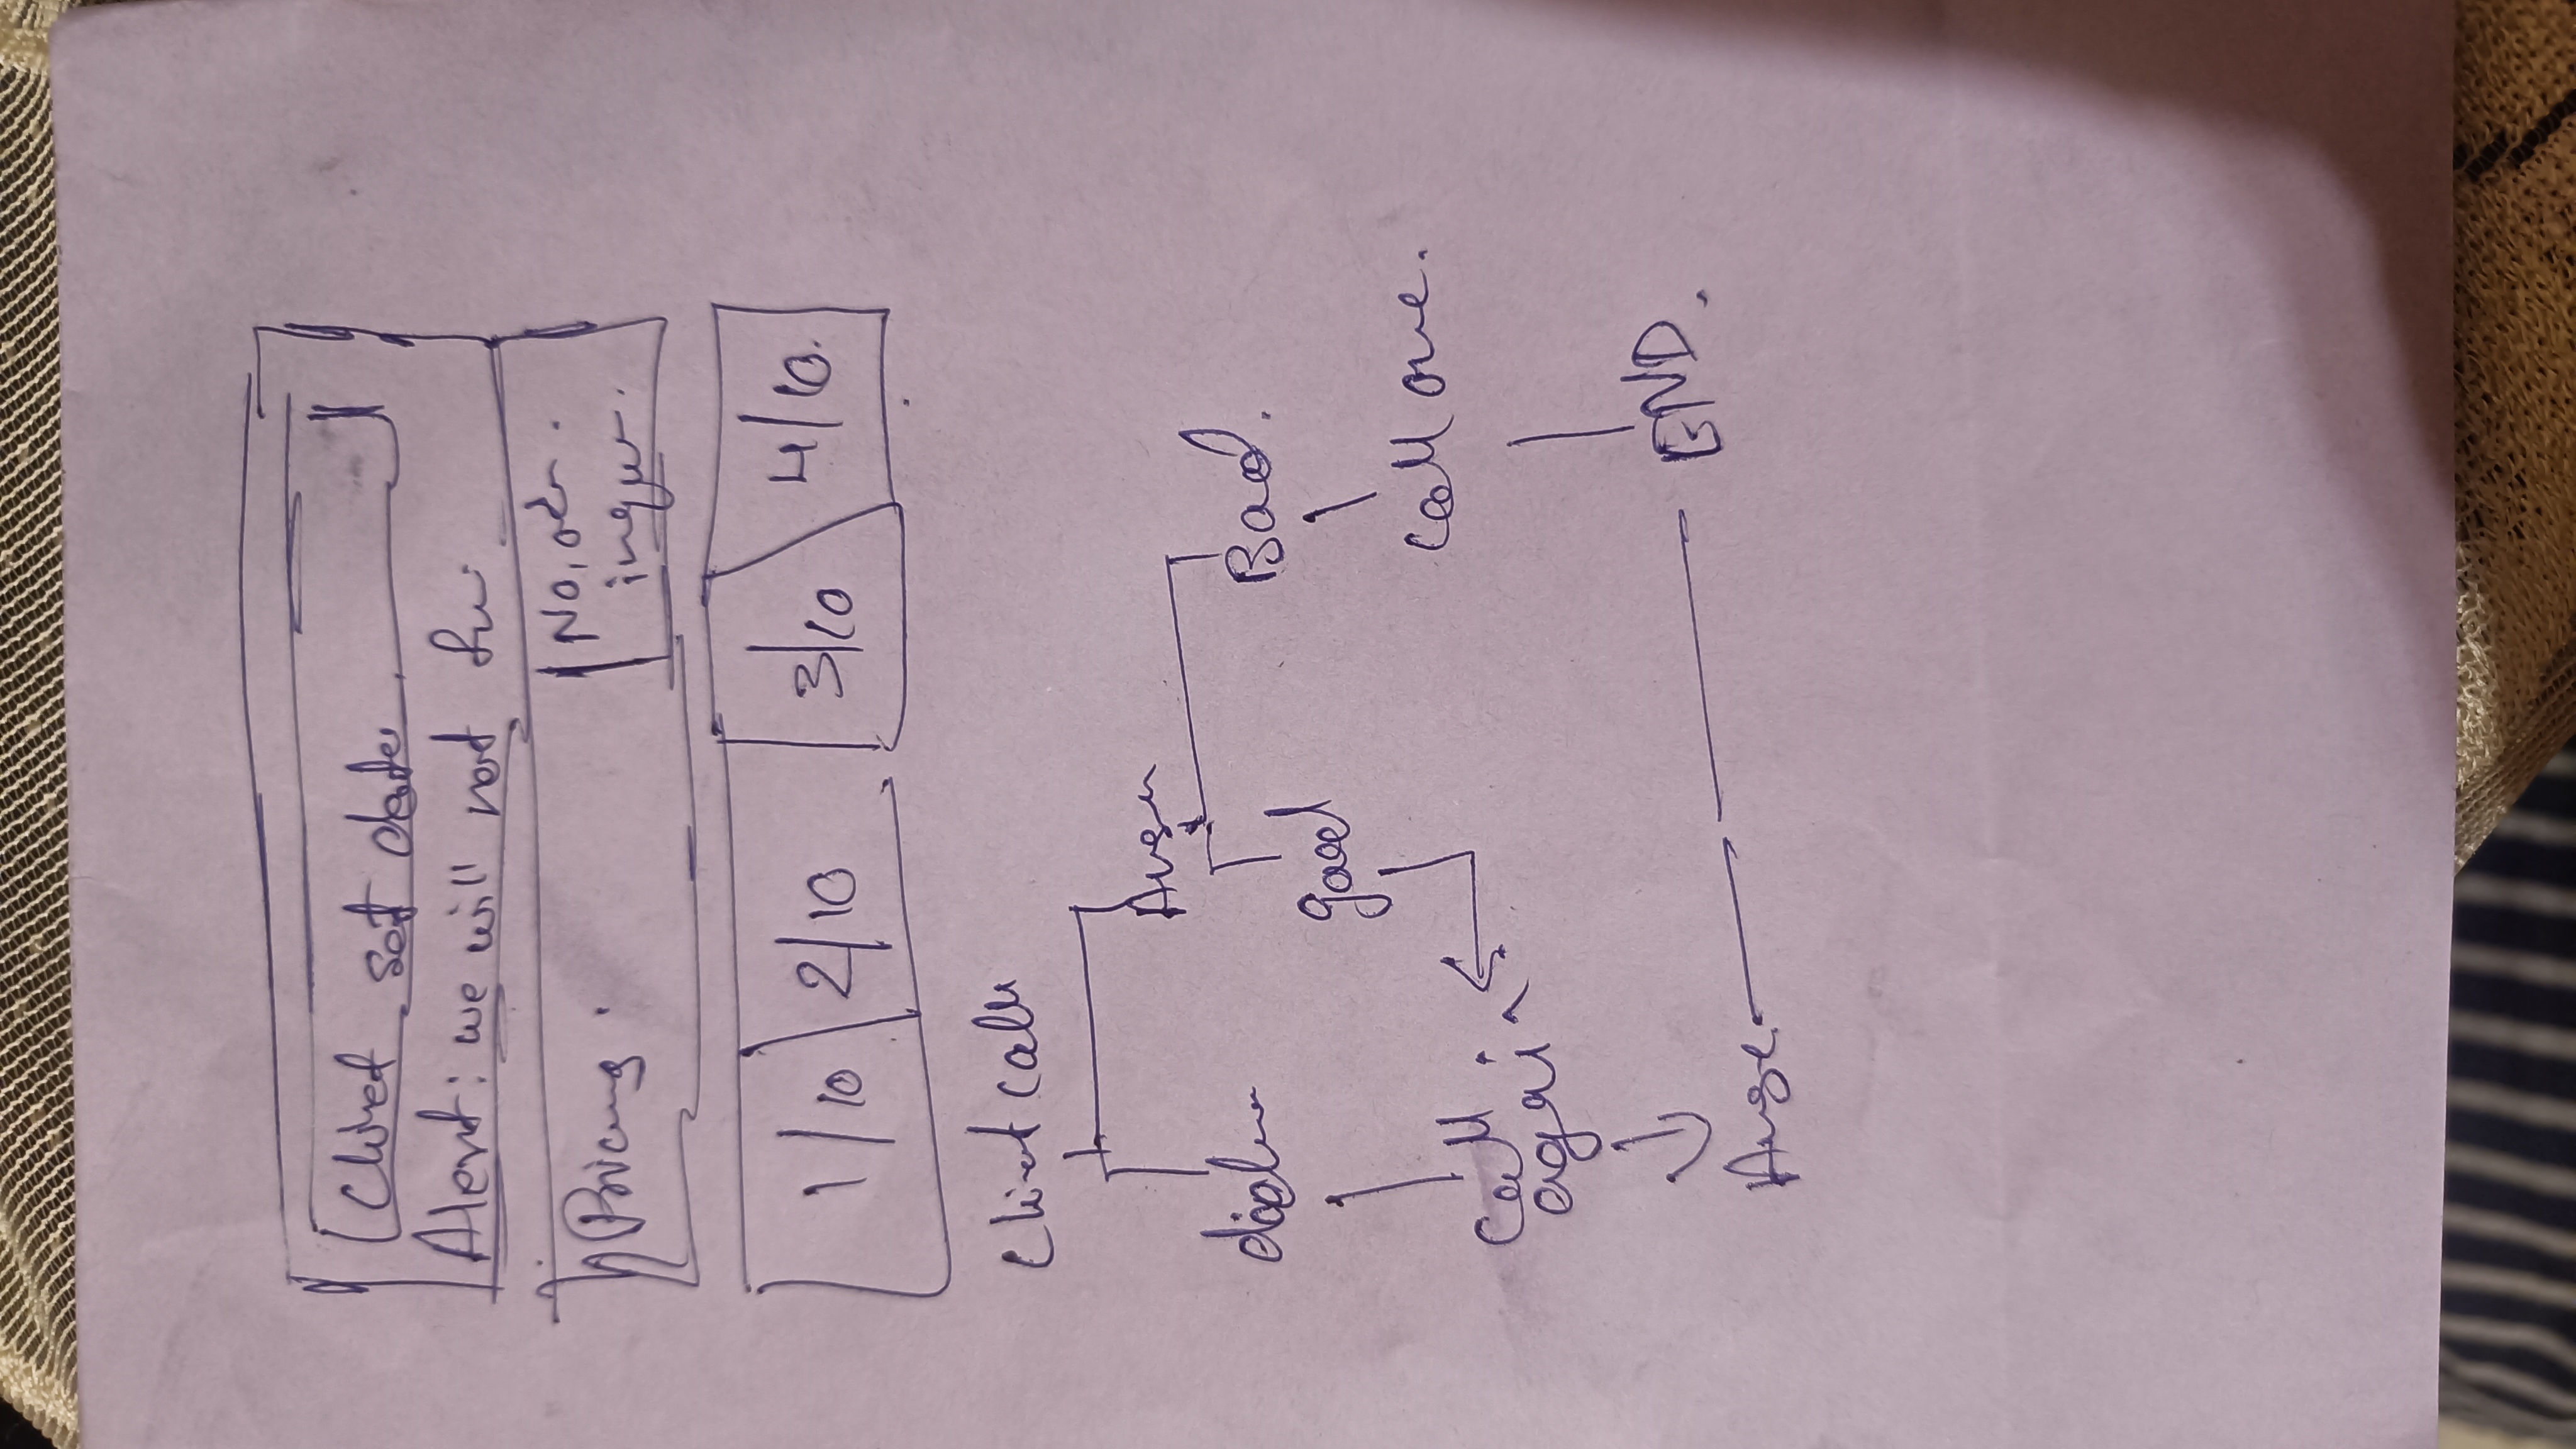 Client set date
Alert: we will not
Pricing.
No, or
1/10 2/10 3/10 4/10.
Client calls
Answer
Good Bad.
Call again Call one.
END.